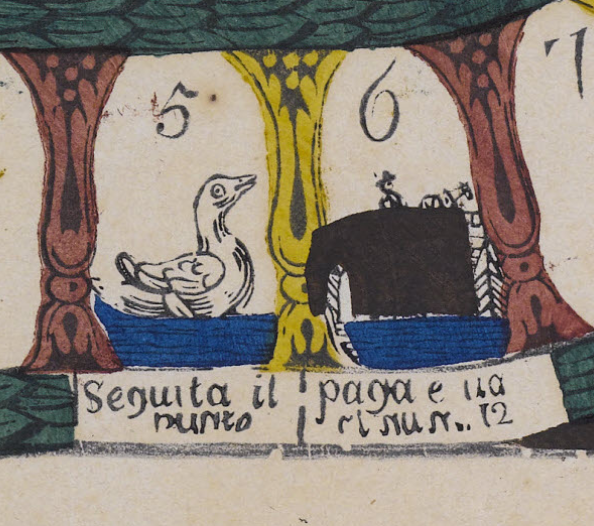 5
6
7
Seguita il
punto
paga e ua
al nu N.. 12